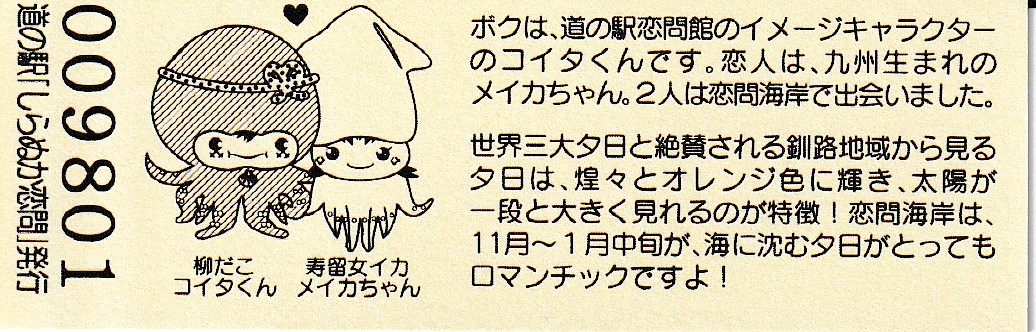 道の駅「しらぬか恋問」発行
009801
柳だこ
コイタくん
寿留女イカ
メイカちゃん
ボクは、道の駅恋問館のイメージキャラクター
のコイタくんです。恋人は、九州生まれの
メイカちゃん。2人は恋問海岸で出会いました。
世界三大夕日と絶賛される釧路地域から見る
夕日は、煌々とオレンジ色に輝き、太陽が
一段と大きく見れるのが特徴！恋問海岸は、
11月～1月中旬が、海に沈む夕日がとっても
ロマンチックですよ！